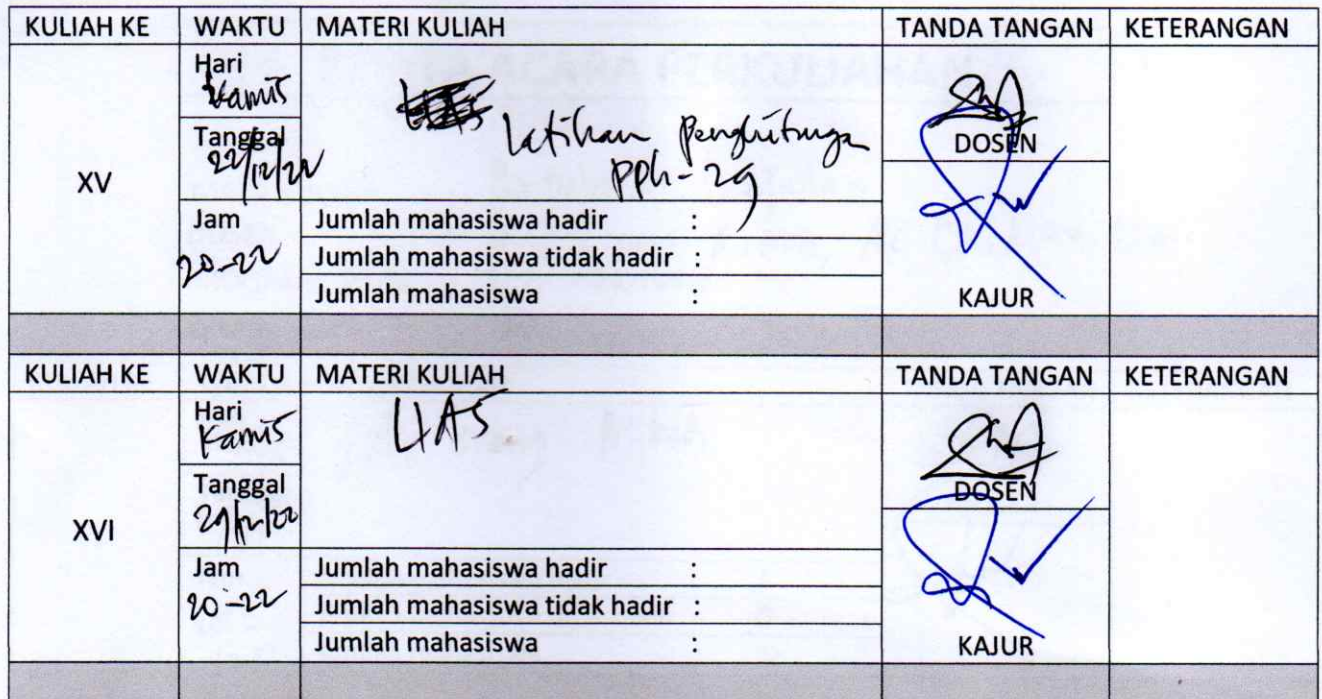 KULIAH KE WAKTU MATERI KULIAH TANDA TANGAN KETERANGAN
XV
Hari
Kamis
Tanggal
22/12/22
Jam
20-22
Latihan Penghitunga
PPh-29
Jumlah mahasiswa hadir :
Jumlah mahasiswa tidak hadir :
Jumlah mahasiswa :
DOSEN
KAJUR
KULIAH KE WAKTU MATERI KULIAH TANDA TANGAN KETERANGAN
XVI
Hari
Kamis
Tanggal
29/12/22
Jam
20-22
UAS
Jumlah mahasiswa hadir :
Jumlah mahasiswa tidak hadir :
Jumlah mahasiswa :
DOSEN
KAJUR